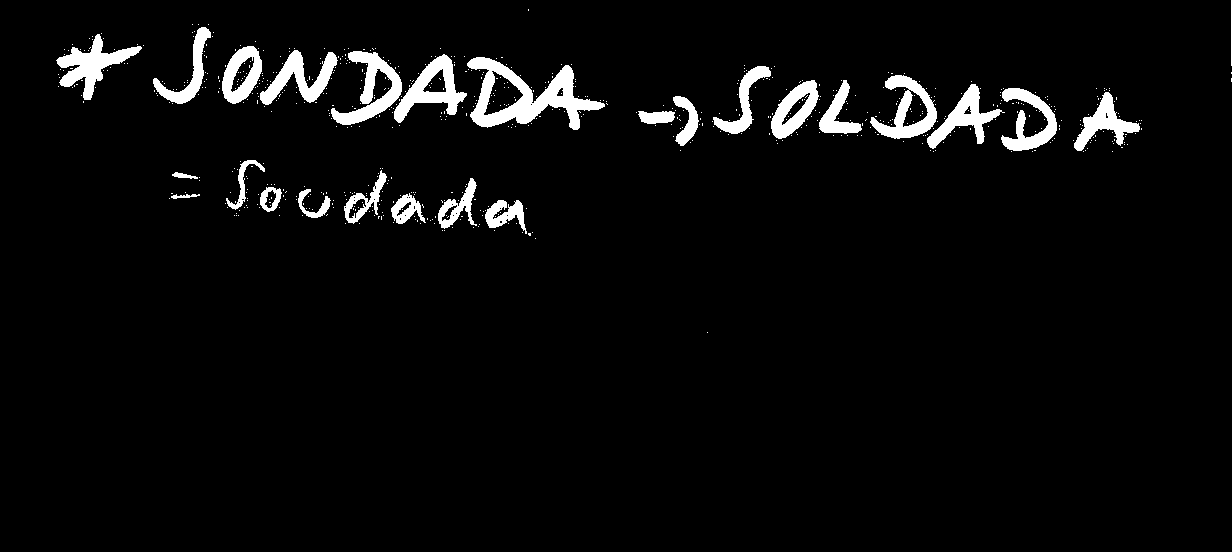 * SONDADA → SOLDADA
= Soudada